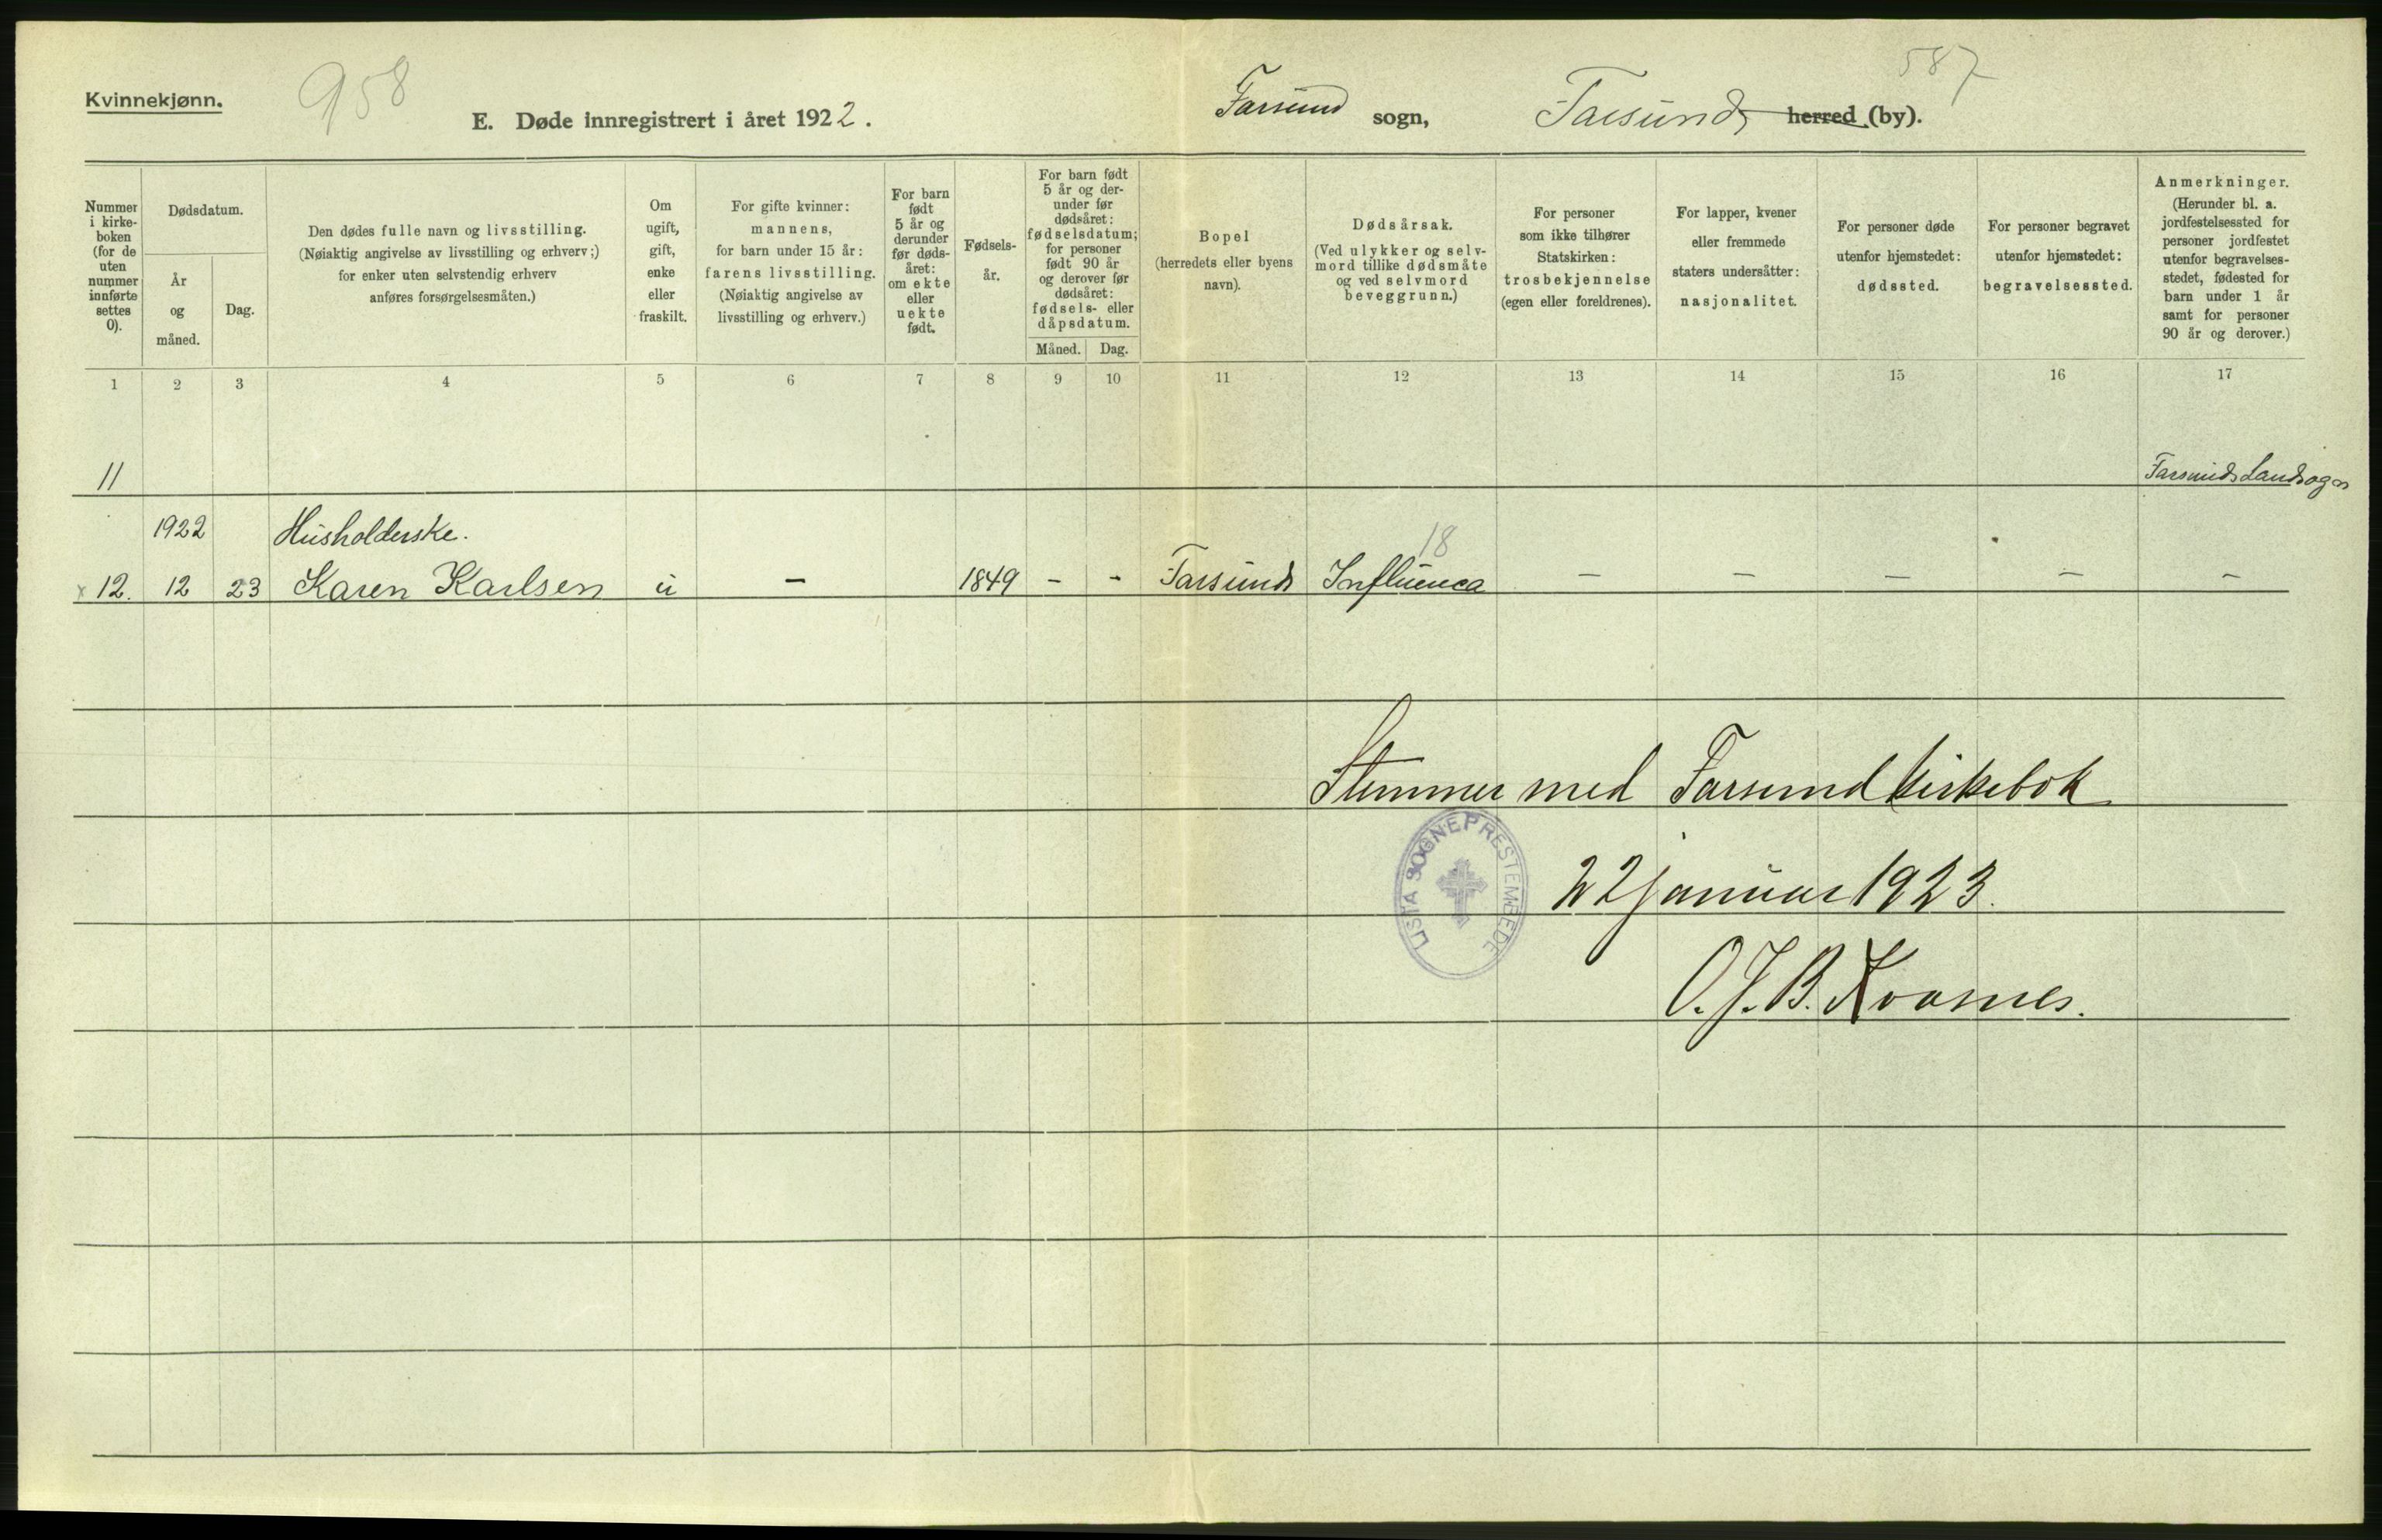 Kvinnekjønn.
958
E. Døde innregistrert i året 1922.
Farsund sogn,
Farsunds herred (by).
587
Nummer
i kirke-
boken
(for de
uten
nummer
innførte
settes
0).
Dødsdatum.
År
og
måned.
Dag.
Den dødes fulle navn og livsstilling.
(Nøiaktig angivelse av livsstilling og erhverv;)
for enker uten selvstendig erhverv
anføres forsørgelsesmåten.)
Om
ugift,
gift,
enke
eller
fraskilt.
For gifte kvinner:
mannens,
for barn under 15 år:
farens livsstilling.
(Nøiaktig angivelse av
livsstilling og erhverv.)
For barn
født
5 år og
derunder
før døds-
året:
om ekte
eller
uekte
født.
Fødsels-
år.
For barn født
5 år og der-
under før
dødsåret:
fødselsdatum;
for personer
født 90 år
og derover før
dødsåret:
fødsels- eller
dåpsdatum.
Måned. Dag.
Bopel
(herredets eller byens
navn).
Dødsårsak.
(Ved ulykker og selv-
mord tillike dødsmåte
og ved selvmord
beveggrunn.)
For personer
som ikke tilhører
Statskirken:
trosbekjennelse
(egen eller foreldrenes).
For lapper, kvener
eller fremmede
staters undersåtter:
nasjonalitet.
For personer døde
utenfor hjemstedet:
dødssted.
For personer begravet
utenfor hjemstedet:
begravelsessted.
Anmerkninger.
(Herunder bl. a.
jordfestelsessted for
personer jordfestet
utenfor begravelses-
stedet, fødested for
barn under 1 år
samt for personer
90 år og derover.)
1 2 3 4 5 6 7 8 9 10 11 12 13 14 15 16 17
11 Farsunds Landsogn
1922 Husholderske. 18
x 12. 12 23 Karen Karlsen u - 1849 - - Farsunds Influenca - - - - -
Stemmer med Farsund kirkebok
LISTA SOGNEPRESTEMBEDE
22 januar 1923.
O. J. B. Kvasnes.